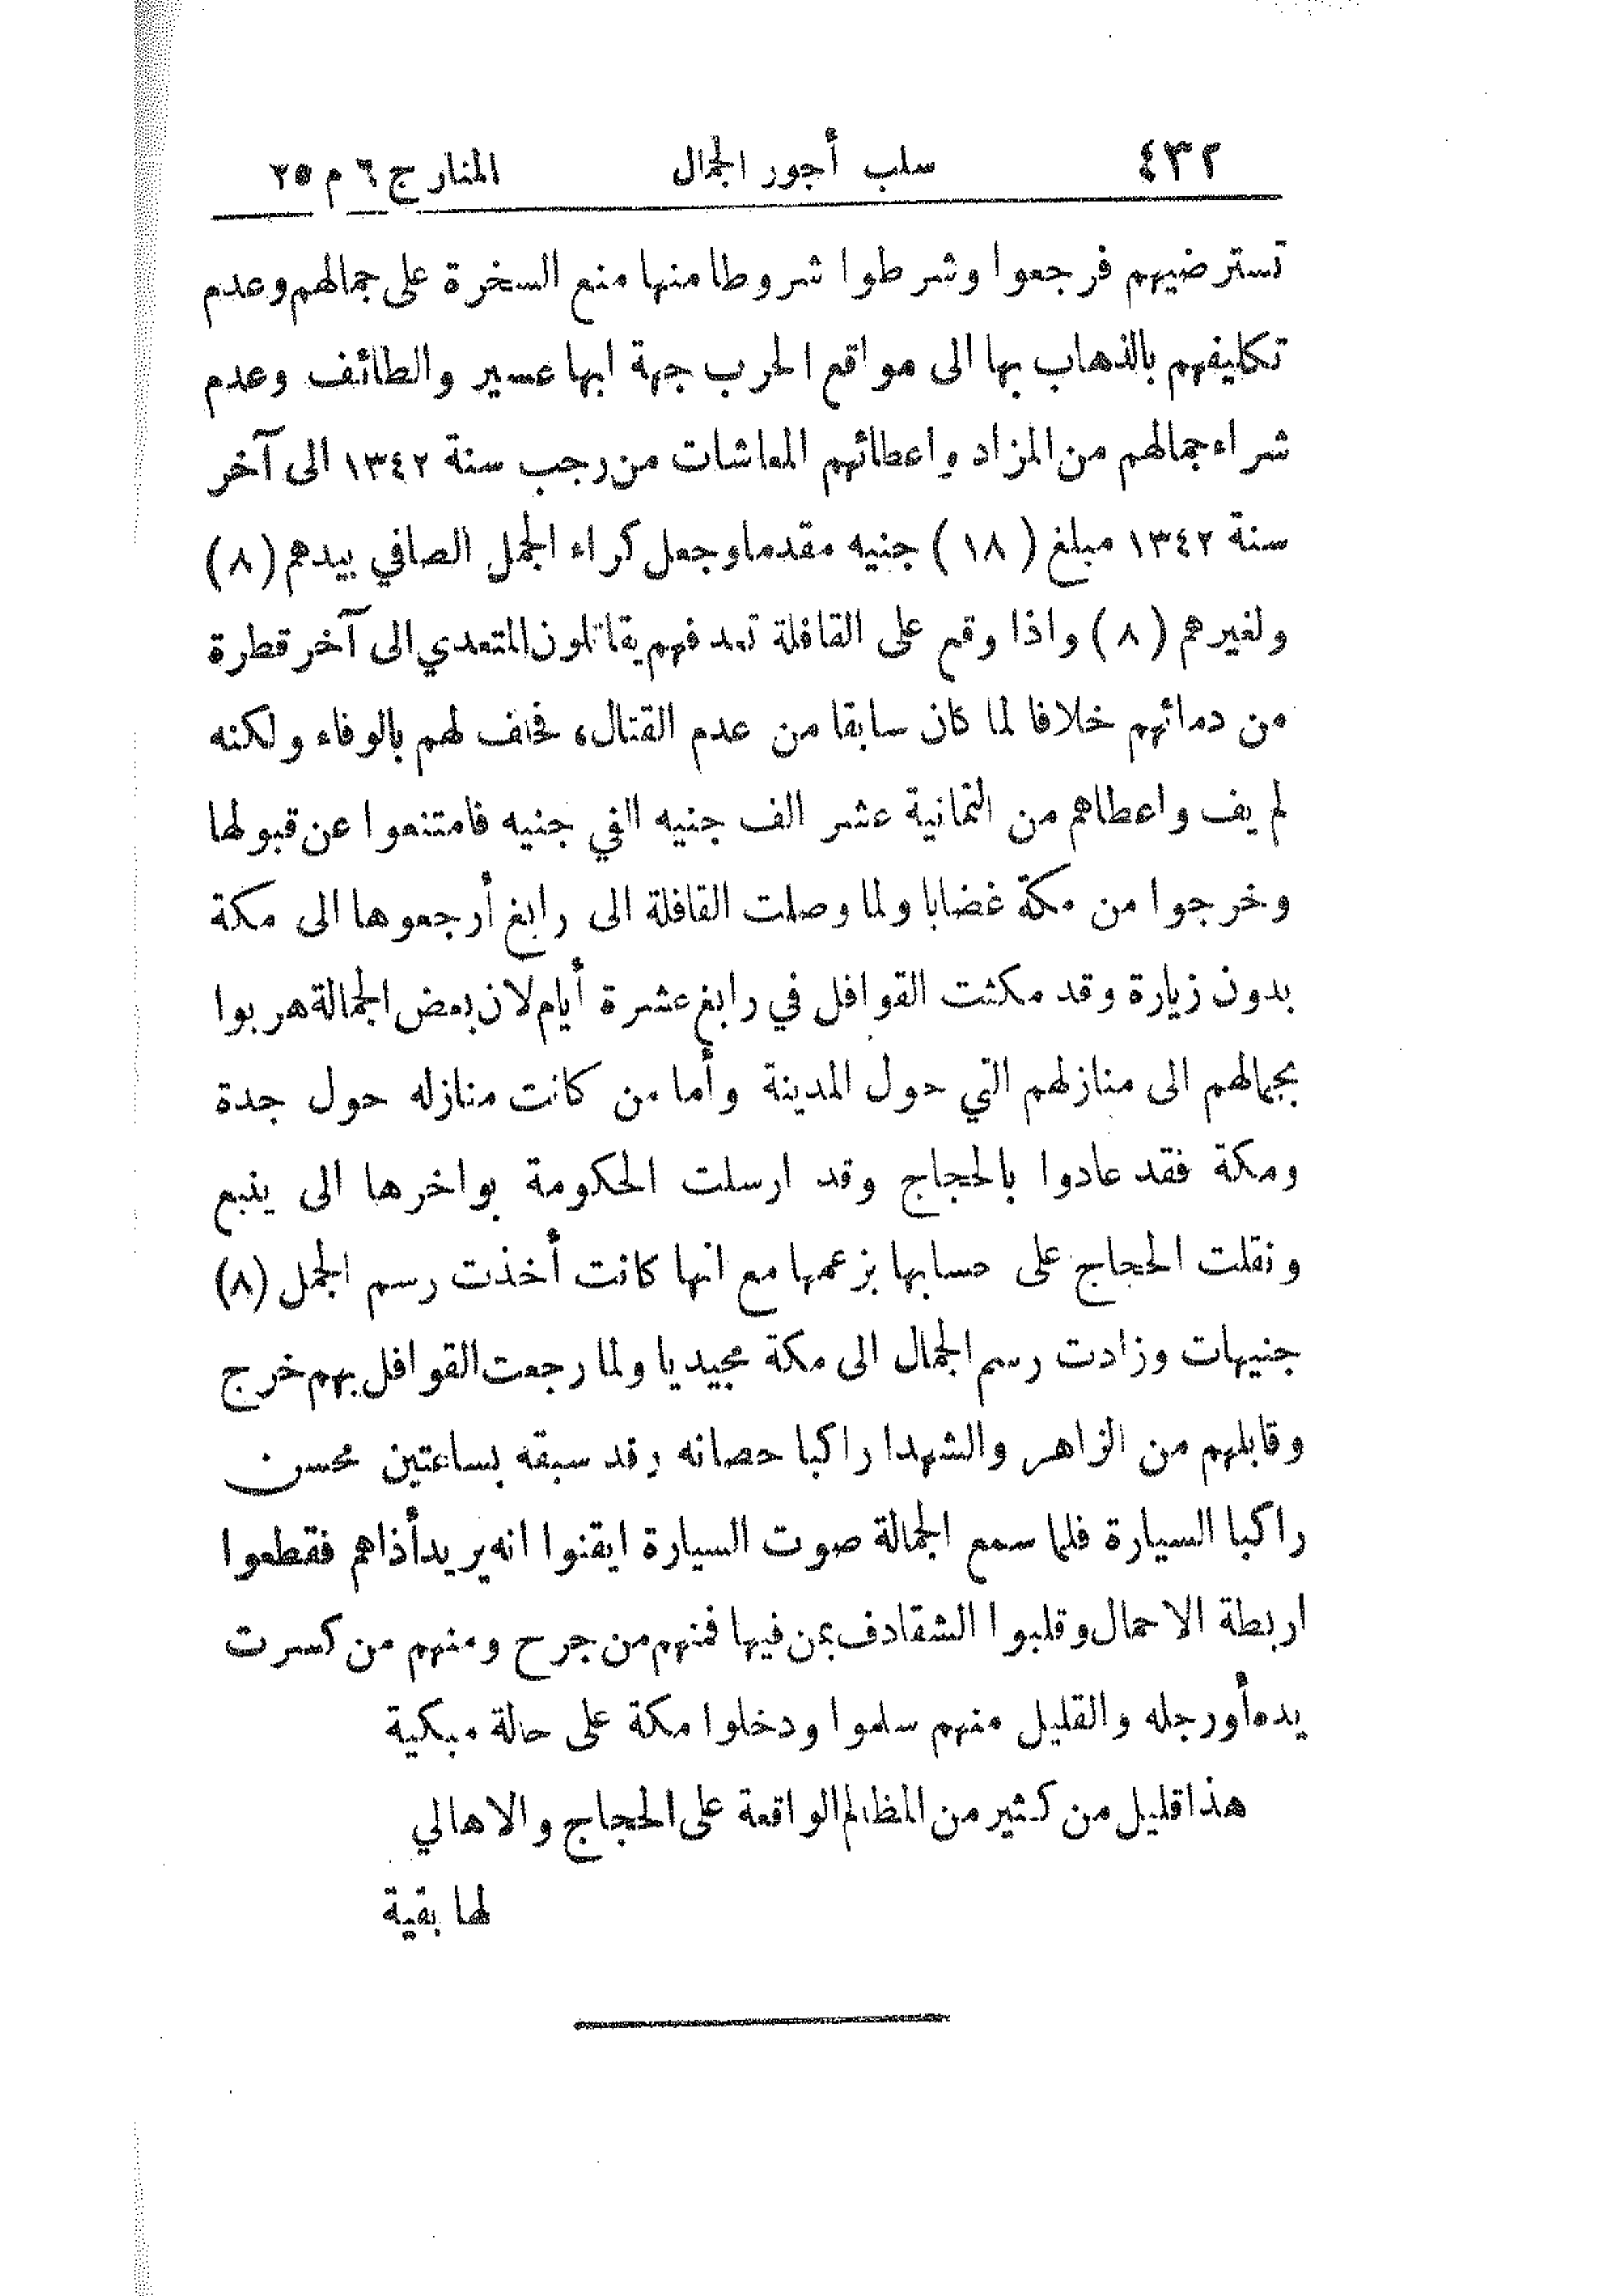 ٤٣٢ سلب أجور الجمال المنار ج ٦ م ٢٥
تسترضيهم فرجعوا وشرطوا شروطا منها منع السخرة على جمالهم وعدم
تكليفهم بالذهاب بها الى مواقع الحرب جهة ابها عسير والطائف وعدم
شراء جمالهم من المزاد واعطائهم المعاشات من رجب سنة ١٣٤٢ الى آخر
سنة ١٣٤٢ مبلغ ( ١٨ ) جنيه مقدما وجعل كراء الجمل الصافي بيدهم (٨)
ولغيرهم (٨) واذا وقع على القافلة تعد فهم يقاتلون المتعدي الى آخر قطرة
من دمائهم خلافا لما كان سابقا من عدم القتال، فحلف لهم بالوفاء ولكنه
لم يف واعطاهم من الثمانية عشر الف جنيه الفي جنيه فامتنعوا عن قبولها
وخرجوا من مكة غضابا ولما وصلت القافلة الى رابغ أرجعوها الى مكة
بدون زيارة وقد مكثت القوافل في رابغ عشرة أيام لان بعض الجمالة هربوا
بجمالهم الى منازلهم التي حول المدينة وأما من كانت منازله حول جدة
ومكة فقد عادوا بالحجاج وقد ارسلت الحكومة بواخرها الى ينبع
ونقلت الحجاج على حسابها بزعمها مع انها كانت أخذت رسم الجمل (٨)
جنيهات وزادت رسم الجمال الى مكة مجيديا ولما رجعت القوافل بهم خرج
وقابلهم من الزاهر والشهدا راكبا حصانه وقد سبقه بساعتين محسن
راكبا السيارة فلما سمع الجمالة صوت السيارة ايقنوا انه يريد أذاهم فقطعوا
اربطة الاحمال وقلبوا الشقادف بمن فيها فمنهم من جرح ومنهم من كسرت
يده أو رجله والقليل منهم سلموا ودخلوا مكة على حالة مبكية
هذا قليل من كثير من المظالم الواقعة على الحجاج والاهالي
لها بقية